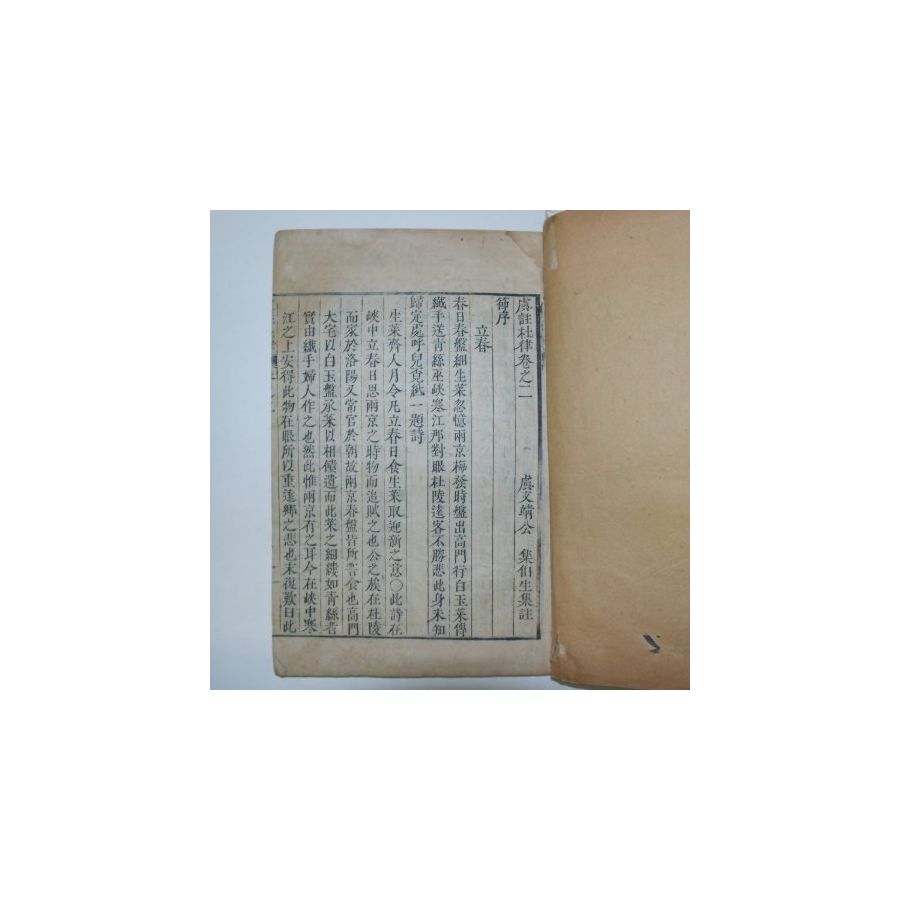 虞註杜律卷之二 虞文靖公 集伯生集註
節序
立春
春日春盤細生菜忽憶兩京梅發時盤出高門行白玉菜傳
纖手送青絲巫峽寒江那對眼杜陵遠客不勝悲此身未知
歸定處呼兒覓紙一題詩
生菜齊人月令凡立春日食生菜取迎新之意〇此詩在
峽中立春日思兩京之時物而追賦之也公之族在杜陵
而家於洛陽又常官於朝故兩京春盤皆所嘗食也高門
大宅以白玉盤承菜以相饋遺而此菜之細縷如青絲者
實由纖手婦人作之也然此惟兩京有之耳今在峽中寒
江之上安得此物在眼所以重遠鄉之悲也末復歎曰此